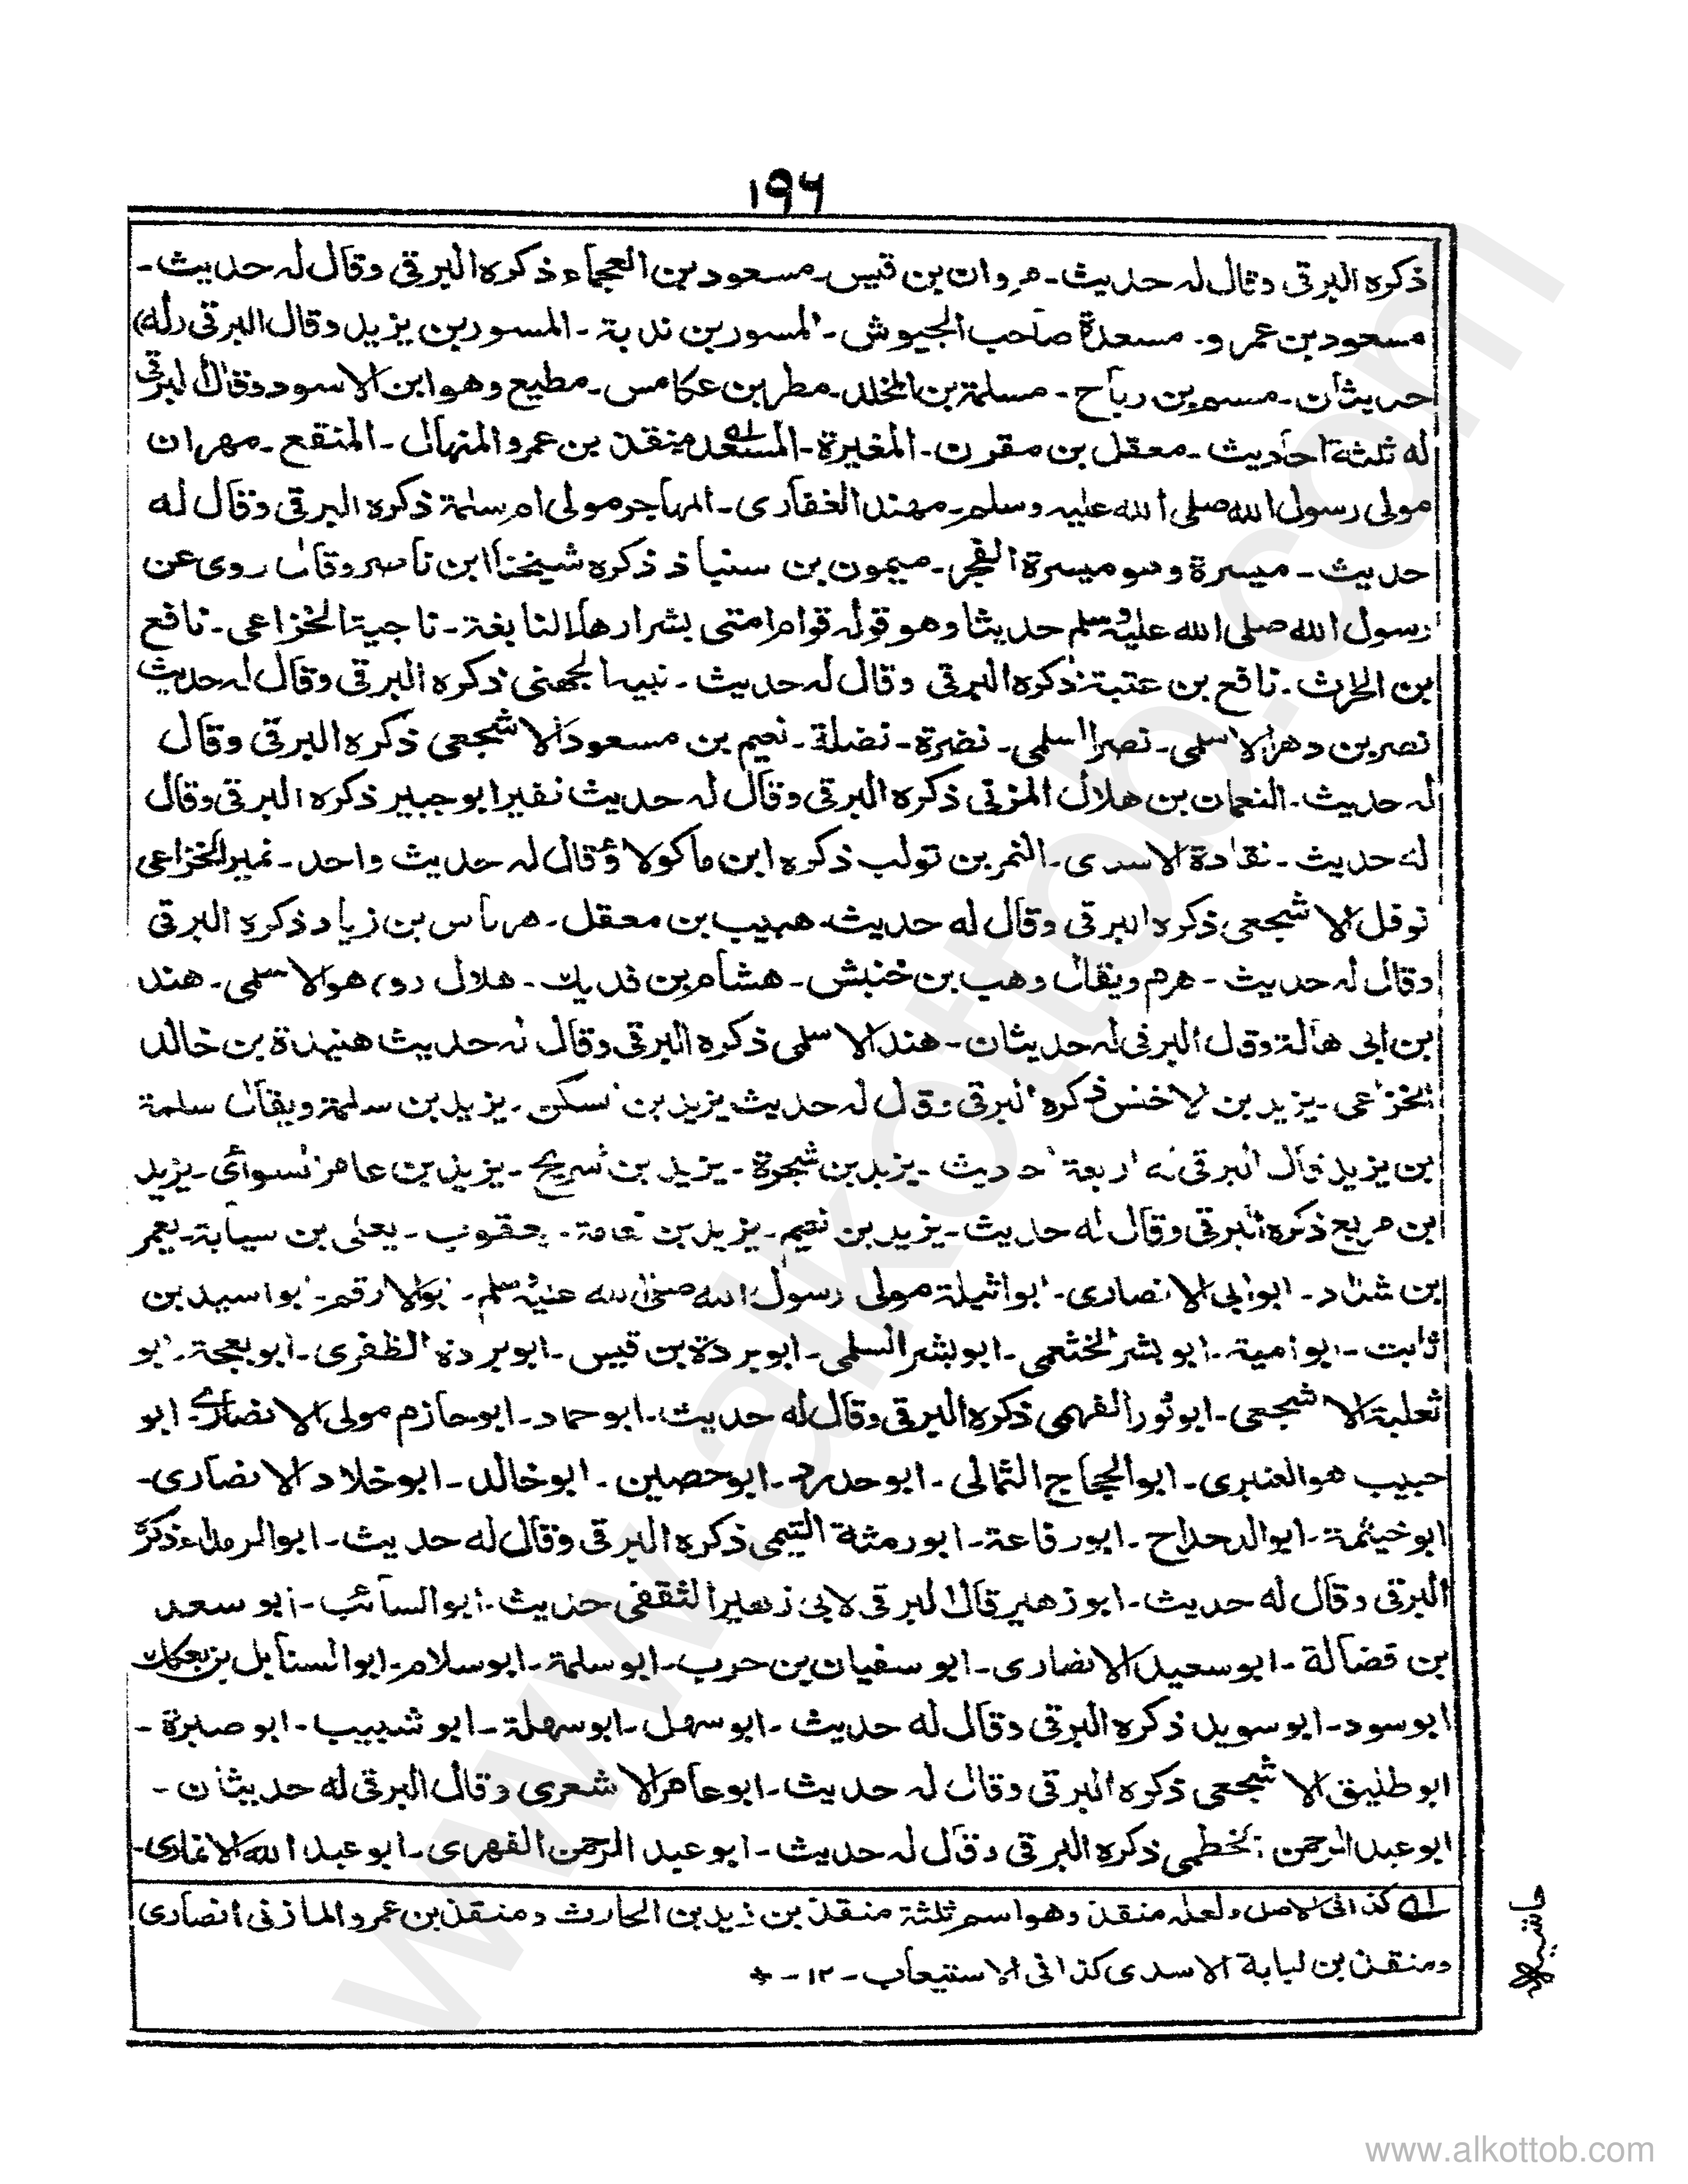 ۱۹۶
ذكره البرقى وقال له حديث۔ مروان بن قيس۔ مسعود بن العجماء ذكره البرقى وقال له حديث۔
مسعود بن عمرو۔ مسعدة صاحب الجيوش۔ المسور بن ندبة۔ المسور بن يزيد وقال البرقى (له)
حديثان۔ مسم بن رباح۔ مسلمة بن المخلد۔ مطر بن عكامس۔ مطيع وهو ابن الاسود وقال البرقى
له ثلثة احاديث۔ معقل بن مقرن۔ المغيرة۔ منقذ بن عمرو المنهال۔ المنقع۔ مهران
مولى رسول الله صلى الله عليه وسلم۔ مهند الغفارى۔ المهاجر مولى ام سلمة ذكره البرقى وقال له
حديث۔ ميسرة وهو ميسرة الفجر۔ ميمون بن سنباذ ذكره شيخنا ابن ناصر وقال روى عن
رسول الله صلى الله عليه وسلم حديثا وهو قوله قوام امتى بشرارها۔ النابغة۔ ناجية الخزاعى۔ نافع
بن الحارث۔ نافع بن عتبة ذكره البرقى وقال له حديث۔ نبيه الجهنى ذكره البرقى وقال له حديث
نصر بن دهر الاسلمى۔ نصر السلمى۔ نضرة۔ نضلة۔ نعيم بن مسعود الاشجعى ذكره البرقى وقال
له حديث۔ النعمان بن هلال المزنى ذكره البرقى وقال له حديث نفير ابو جبير ذكره البرقى وقال
له حديث۔ نقادة الاسدى۔ النمر بن تولب ذكره ابن ماكولا وقال له حديث واحد۔ نمير الخزاعى
نوفل الاشجعى ذكره البرقى وقال له حديث۔ هبيب بن معقل۔ هرماس بن زياد ذكره البرقى
وقال له حديث۔ هرم ويقال وهب بن خنبش۔ هشام بن فديك۔ هلال (و) هو الاسلمى۔ هند
بن ابى هالة وقال البرقى له حديثان۔ هند الاسلمى ذكره البرقى وقال له حديث هنيدة بن خالد
الخزاعى۔ يزيد بن الاخنس ذكره البرقى وقال له حديث يزيد بن السكن۔ يزيد بن سلمة ويقال سلمة
بن يزيد قال البرقى له اربعة احاديث۔ يزيد بن شجرة۔ يزيد بن شريح۔ يزيد بن عامر السوائى۔ يزيد
ابن مربع ذكره البرقى وقال له حديث۔ يزيد بن نعيم۔ يزيد بن نعامة۔ يعقوب۔ يعلى بن سيابة۔ يعمر
بن شداد۔ ابو ابى الانصارى۔ ابو اثيلة مولى رسول الله صلى الله عليه وسلم۔ ابو الارقم۔ ابو اسيد بن
ثابت۔ ابو امية۔ ابو بشر الخثعمى۔ ابو بشر السلمى۔ ابو بردة بن قيس۔ ابو بردة الظفرى۔ ابو بعجة۔ ابو
ثعلبة الاشجعى۔ ابو ثور الفهمى ذكره البرقى وقال له حديث۔ ابو حماد۔ ابو حازم مولى الانصارى۔ ابو
حبيب هو العنبرى۔ ابو الحجاج الثمالى۔ ابو حدرد۔ ابو حصين۔ ابو خالد۔ ابو خلاد الانصارى۔
ابو خيثمة۔ ابو الدحداح۔ ابو رفاعة۔ ابو رمثة التيمى ذكره البرقى وقال له حديث۔ ابو الرمداء ذكره
البرقى وقال له حديث۔ ابو زهير قال البرقى لابى زهير الثقفى حديث۔ ابو السائب۔ ابو سعد
بن فضالة۔ ابو سعيد الانصارى۔ ابو سفيان بن حرب۔ ابو سلمة۔ ابو سلام۔ ابو السنابل بن بعكك
ابو سود۔ ابو سويد ذكره البرقى وقال له حديث۔ ابو سهل۔ ابو سهلة۔ ابو شبيب۔ ابو صبرة۔
ابو طليق الاشجعى ذكره البرقى وقال له حديث۔ ابو عامر الاشعرى وقال البرقى له حديثان۔
ابو عبد الرحمن الخطمى ذكره البرقى وقال له حديث۔ ابو عبد الرحمن الفهرى۔ ابو عبد الله الانمارى۔
حاشيه
له كذا فى الاصل ولعله منقذ وهو اسم ثلثة منقذ بن زيد بن الحارث ومنقذ بن عمرو المازنى انصارى
ومنقذ بن لبابة الاسدى كذا فى الاستيعاب۔ ۱۲۔
www.alkottob.com
www.alkottob.com